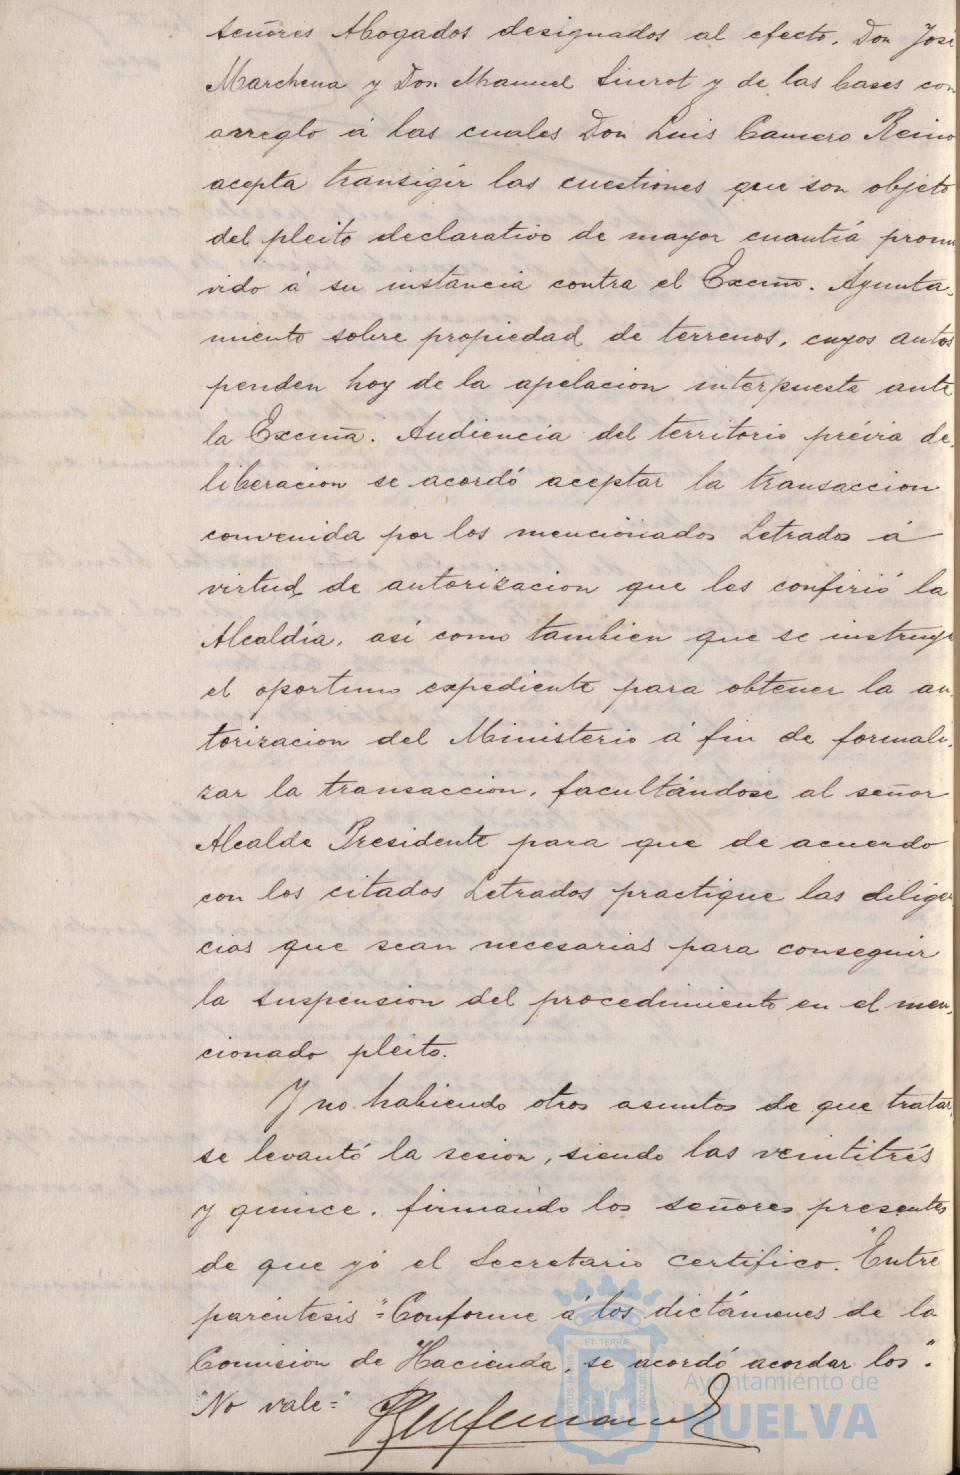 señores Abogados designados al efecto, Don José
Marchena y Don Manuel Siurot y de las bases con
arreglo á las cuales Don Luis Camero Reino
acepta transigir las cuestiones que son objeto
del pleito declarativo de mayor cuantía promo
vido á su instancia contra el Excmo. Ayunta-
miento sobre propiedad de terrenos, cuyos autos
penden hoy de la apelacion interpuesta ante
la Excma. Audiencia del territorio prévia de-
liberacion se acordó aceptar la transaccion
convenida por los mencionados Letrados á
virtud de autorizacion que les confirió la
Alcaldía, así como tambien que se instruya
el oportuno expediente para obtener la au-
torizacion del Ministerio á fin de formali-
zar la transaccion, facultándose al señor
Alcalde Presidente para que de acuerdo
con los citados Letrados practique las diligen
cias que sean necesarias para conseguir
la suspension del procedimiento en el men-
cionado pleito.
Y no habiendo otros asuntos de que tratar,
se levantó la sesion, siendo las veintitrés
y quince, firmando los señores presentes
de que yó el Secretario certifico. Entre
paréntesis "=Conforme á los dictámenes de la
Comision de Hacienda, se acordó acordar los".
"No vale="
Ayuntamiento de
HUELVA